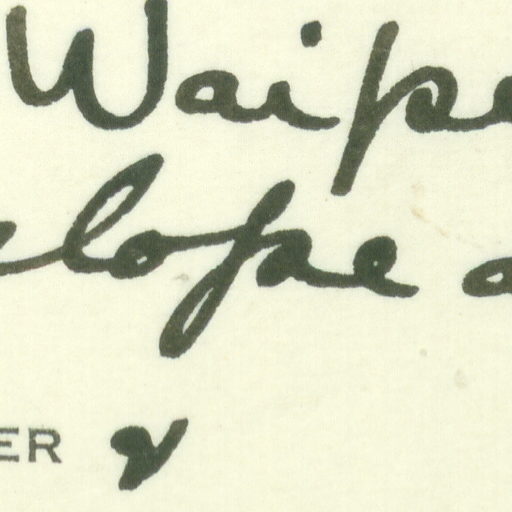 Waipe
elope a
ER